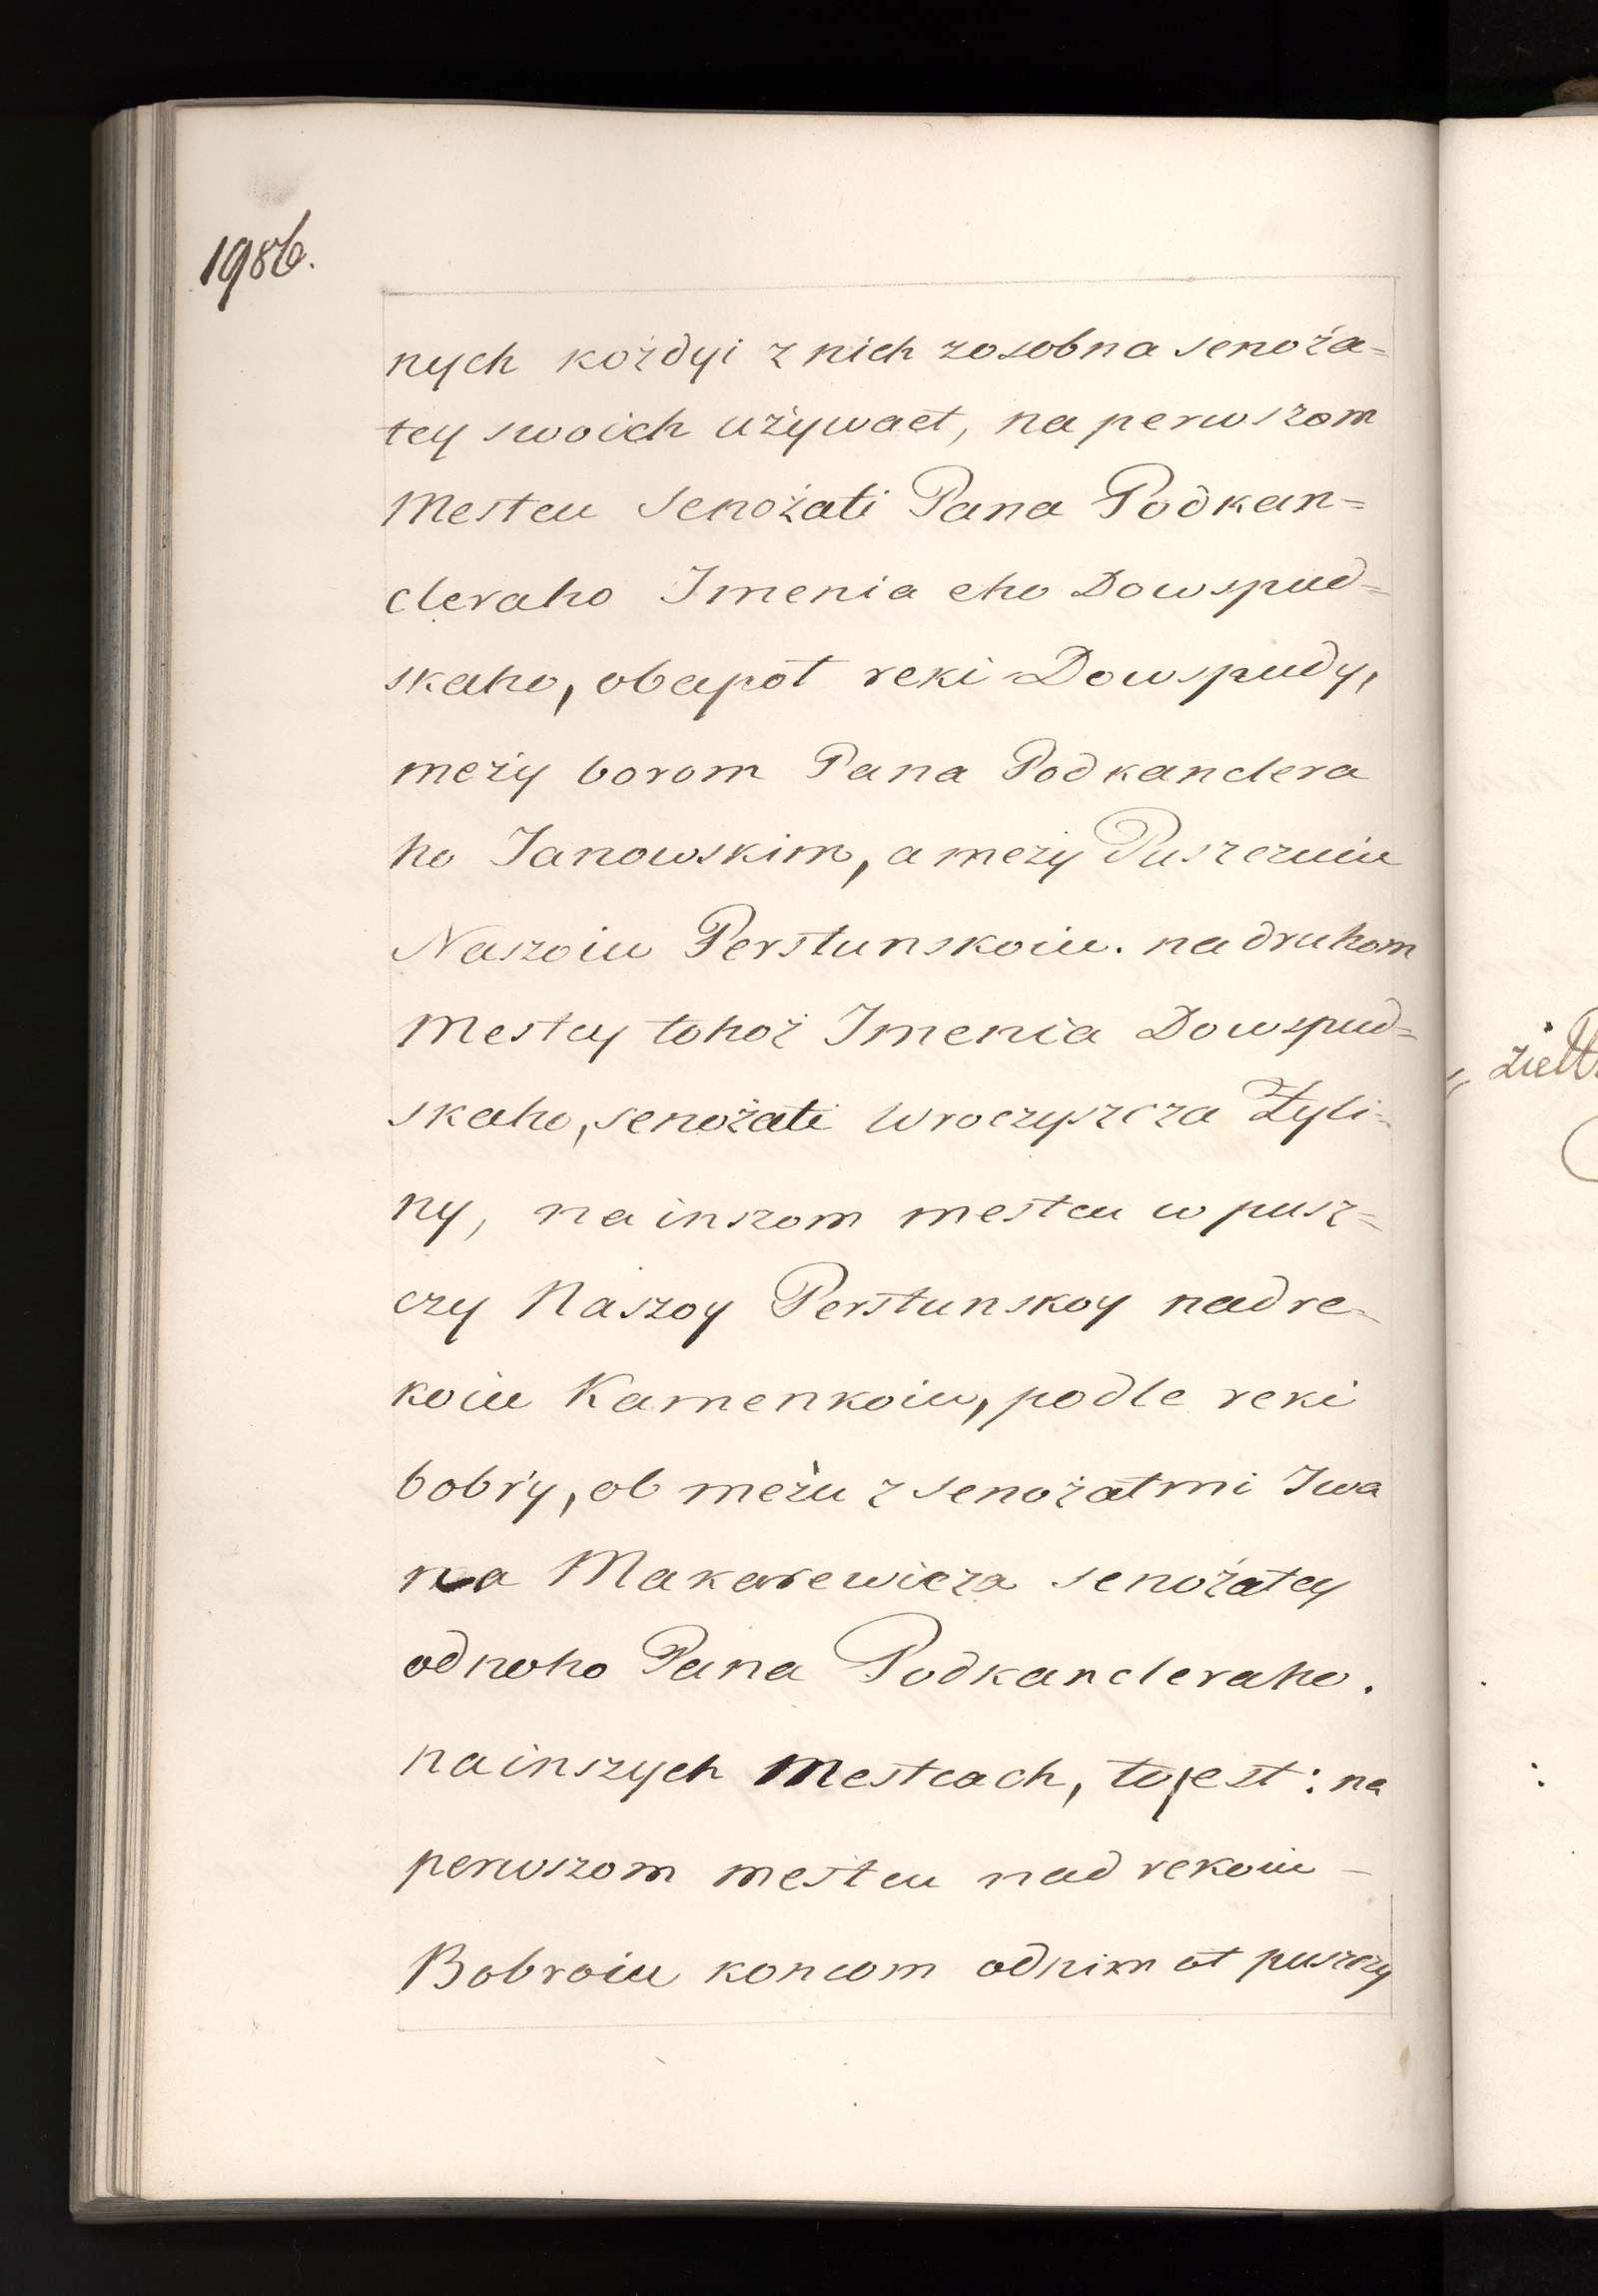 1986.
nych kożdyi z nich zosobna senoża=
tey swoich używaet, na perwszom
Mestcu Senożati Pana Podkan=
cleraho Imenia eho Dowspud=
skaho, obapoł reki Dowspudy,
meży borom Pana Podkanclera
ho Janowskim, a meży Puszczuiu
Naszoiu Perstunskoiu. na druhom
Mestcy tohoż Imenia Dowspud=
skaho, senożati Wroczyszcza Żyli=
ny, na inszom mestcu w pusz=
czy Naszoy Perstunskoy nad re=
koiu Kamenkoiu, podle reki
bobry, ob meżu z senożatmi Iwa
na Makarewicza senożatey
odnoho Pana Podkancleraho.
na inszych Mestcach, to jest: na
perwszom mestcu nad rekoiu –
Bobroiu koncom odnim ot puszczy